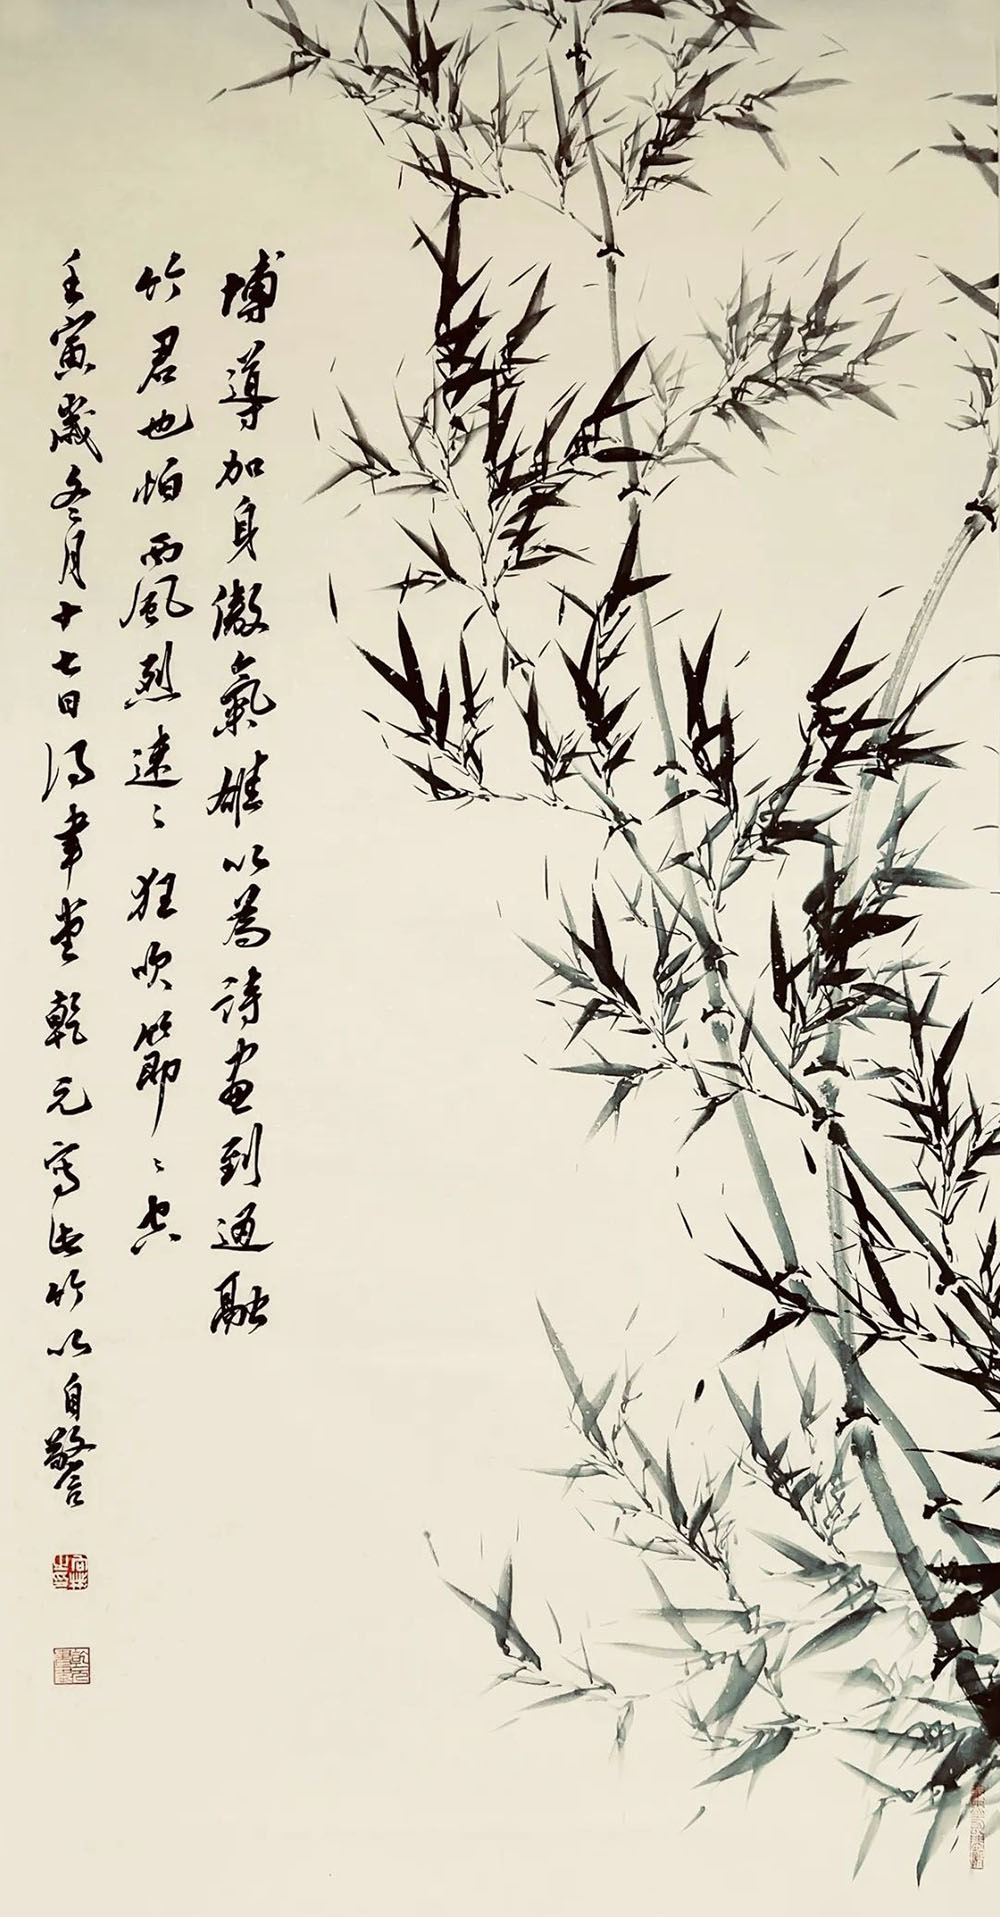 博導加身傲氣雄以為詩畫到通融
竹君也怕西風烈速々狂吹節々空
壬寅歲冬月十七日堂乾元寫此竹以自警